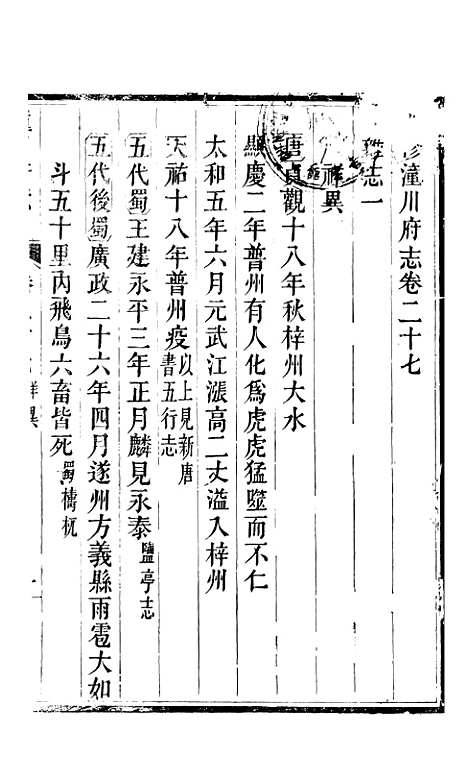 潼川府志卷二十七
雜志一
祥異
唐貞觀十八年秋梓州大水
顯慶二年普州有人化爲虎虎猛噬而不仁
太和五年六月元武江漲高二丈溢入梓州
天祐十八年普州疫以上見新唐書五行志
五代蜀王建永平三年正月麟見永泰鹽亭志
五代後蜀廣政二十六年四月遂州方義縣雨雹大如
斗五十里內飛鳥六畜皆死蜀檮杌
祥異